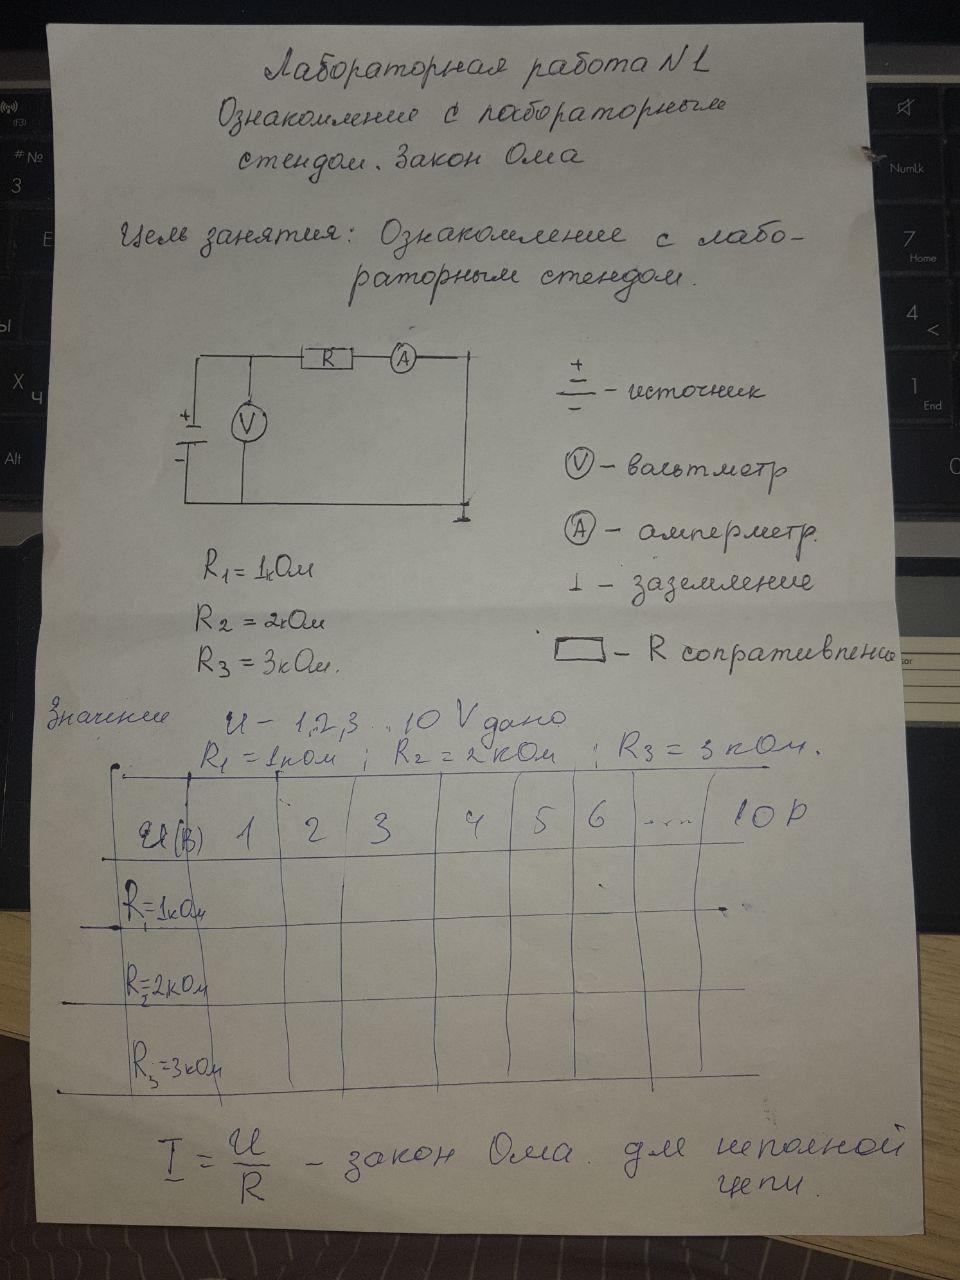 Лабораторная работа N1
Ознакомление с лабораторным
стендом. Закон Ома
Цель занятия: Ознакомление с лабо-
раторным стендом.
R
A
V
+
-
+
- источник
-
V - вольтметр
A - амперметр.
⊥ - заземление
R - сопративление
R1 = 1кОм
R2 = 2кОм
R3 = 3кОм.
Значение U - 1,2,3 .. 10 V дано
R1 = 1кОм ; R2 = 2кОм ; R3 = 3кОм.
U(В) 1 2 3 4 5 6 .... 10
R1=1кОм
R2=2кОм
R3=3кОм
I = U/R - закон Ома для неполной
цепи.
# №
3
E
Ы
X
Ч
Alt
(F3)
NumLk
7
Home
4
<
1
End